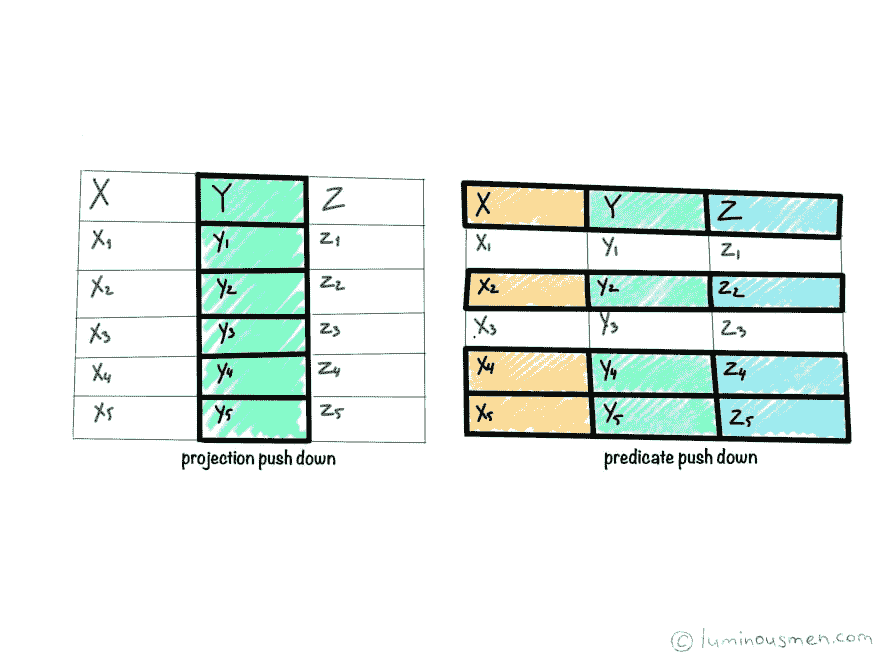 X Y Z
X1 Y1 Z1
X2 Y2 Z2
X3 Y3 Z3
X4 Y4 Z4
X5 Y5 Z5
projection push down
X Y Z
X1 Y1 Z1
X2 Y2 Z2
X3 Y3 Z3
X4 Y4 Z4
X5 Y5 Z5
predicate push down
© luminousmen.com